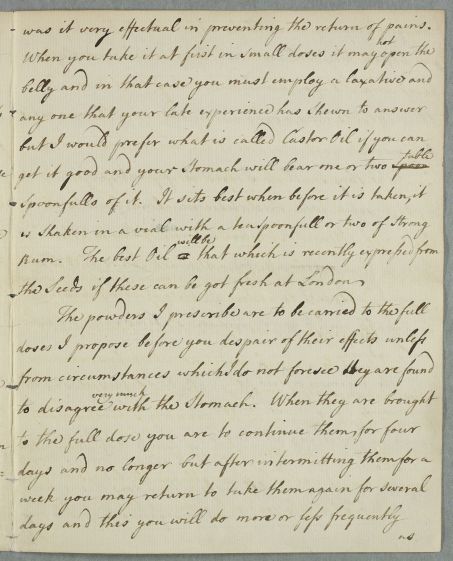 was it very effectual in preventing the return of pains.
When you take it at first in small doses it may not open the
belly and in that case you must employ a laxative and
any one that your late experience has shewn to answer
but I would prefer what is called Castor Oil if you can
get it good and your Stomach will bear one or two table
Spoonfulls of it. It sits best when before it is taken, it
is shaken in a vial with a teaspoonfull or two of Strong
Rum. The best Oil will be that which is recently expressed from
the Seeds if these can be got fresh at London.
The powders I prescribe are to be carried to the full
doses I propose before you despair of their effects unless
from circumstances which I do not foresee they are found
to disagree very much with the Stomach. When they are brought
to the full dose you are to continue them for four
days and no longer but after intermitting them for a
week you may return to take them again for several
days and this you will do more or less frequently
as